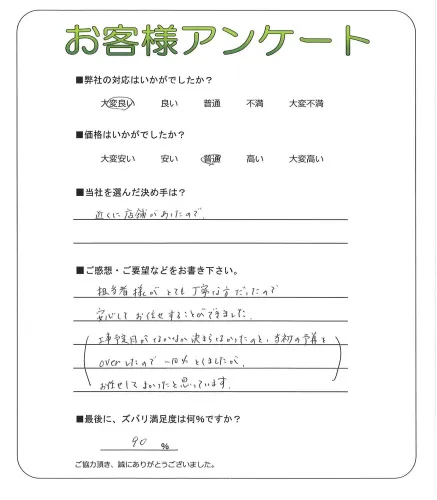 お客様アンケート
■弊社の対応はいかがでしたか？
大変良い 良い 普通 不満 大変不満
■価格はいかがでしたか？
大変安い 安い 普通 高い 大変高い
■当社を選んだ決め手は？
近くに店舗があったので。
■ご感想・ご要望などをお書き下さい。
担当者様がとても丁寧な方だったので
安心してお任せすることができました。
工事予定日がなかなか決まらなかったのと、当初の予算を
overしたので -10%としましたが、
お任せしてよかったと思っています。
■最後に、ズバリ満足度は何%ですか？
90 %
ご協力頂き、誠にありがとうございました。